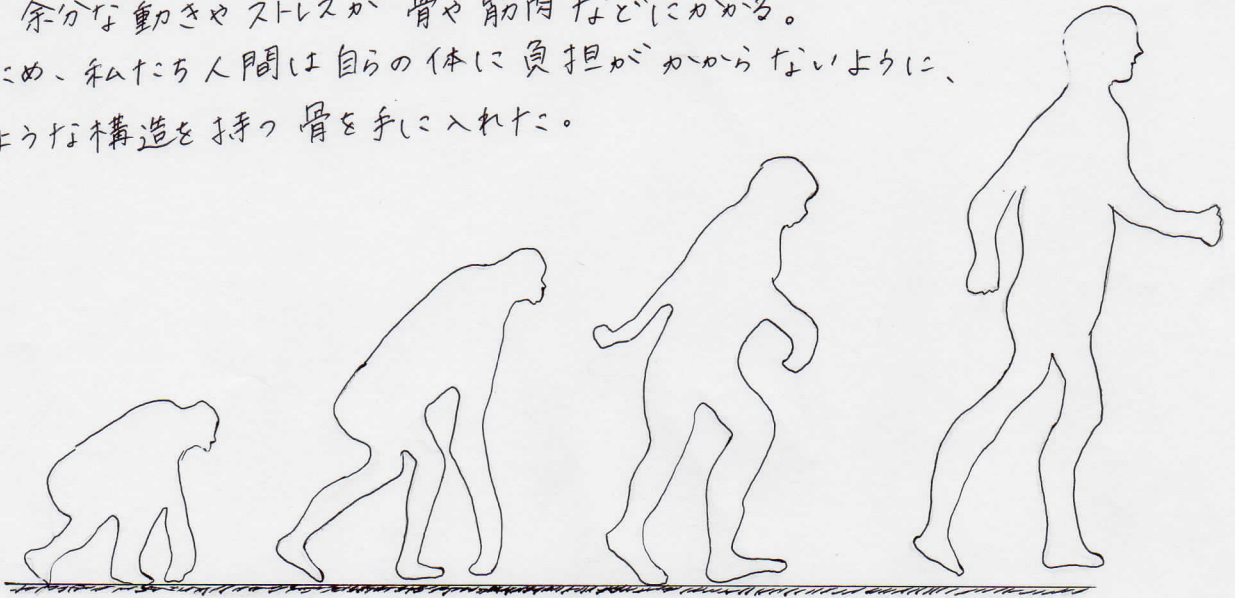 余分な動きやストレスが 骨や筋肉などにかかる。
ため、私たち人間は自らの体に負担がかからないように、
ような構造を持つ骨を手に入れた。